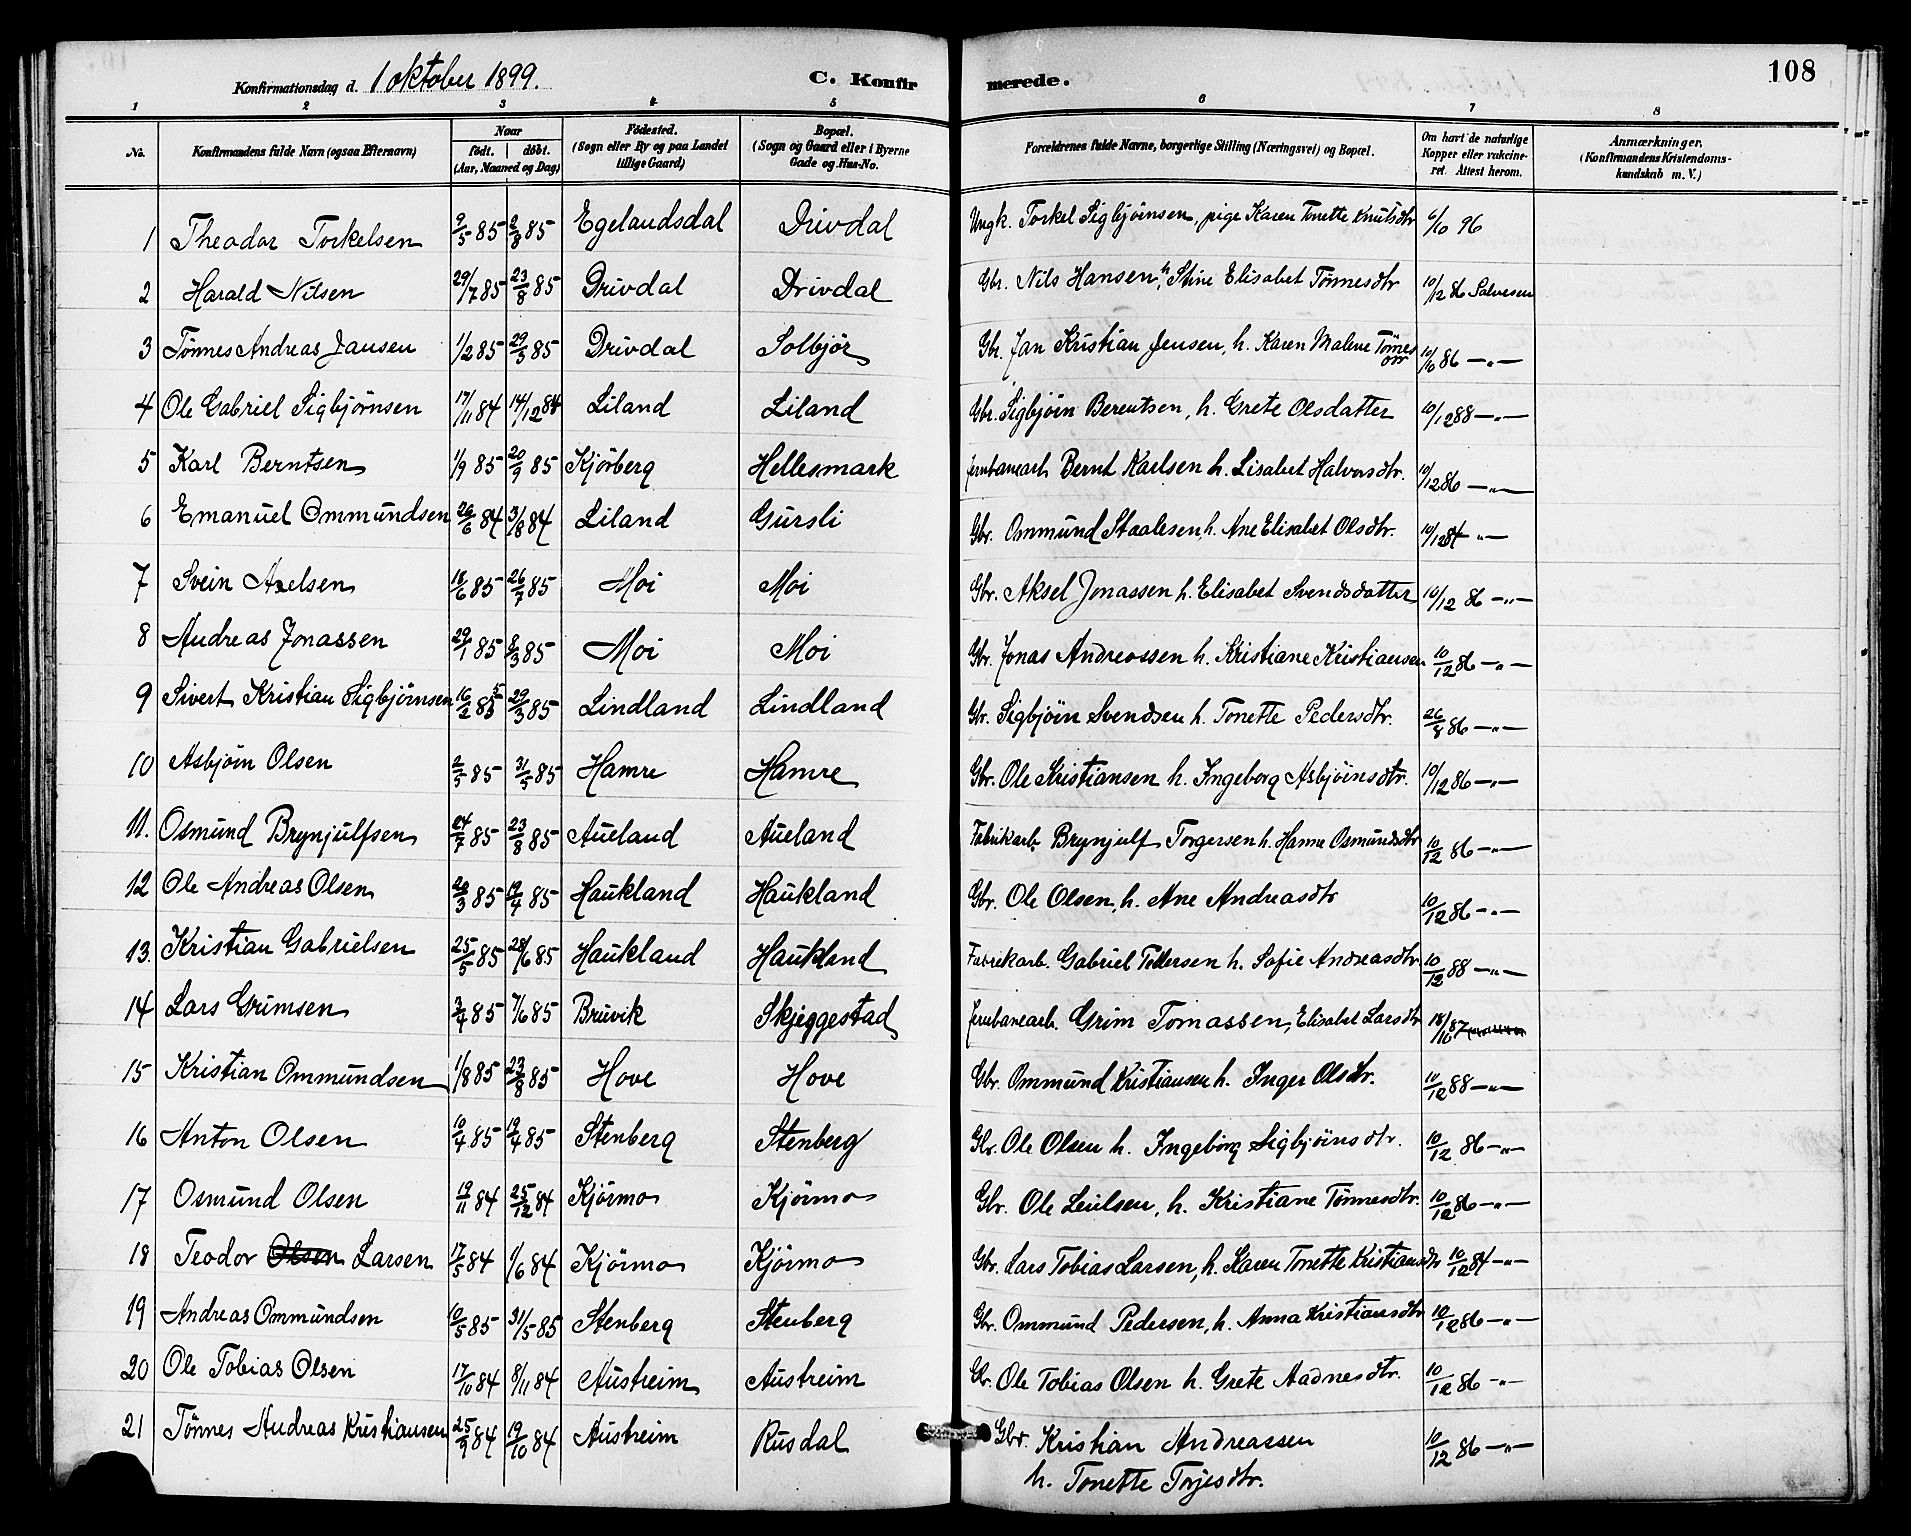 108
Konfirmationsdag d. 1 oktober 1899. C. Konfirmerede.
1 2 3 4 5 6 7 8
No. Konfirmandens fulde Navn (ogsaa Efternavn) Naar født. døbt. (Aar, Maaned og Dag) Fødested. (Sogn eller By og paa Landet tillige Gaard) Bopæl. (Sogn og Gaard eller i Byerne Gade og Hus-No. Forældrenes fulde Navne, borgerlige Stilling (Næringsvei) og Bopæl. Om havt de naturlige Kopper eller vakcineret. Attest herom. Anmærkninger. (Konfirmandens Kristendomskundskab m. V.)
1 Theodor Torkelsen 9/5 85 2/8 85 Egelandsdal Drivdal Ungk. Torkel Sigbjörnsen, pige Karen Tonette Knutsdtr 6/10 96
2 Harald Nilsen 29/7 85 23/8 85 Drivdal Drivdal Gbr. Nils Hansen, h. Stine Elisabet Tönnesdtr 10/12 86 Salvesen
3 Tönnes Andreas Jansen 1/2 85 29/3 85 Drivdal Solbjör Gbr. Jan Kristian Jensen, h. Karen Malene Tönnesdtr 10/10 86 -"-
4 Ole Gabriel Sigbjörnsen 17/11 84 14/12 84 Liland Liland Gbr. Sigbjörn Berentsen, h. Grete Olsdatter 10/12 88 -"-
5 Karl Berntsen 1/9 85 20/9 85 Kjörberg Hellesmark Jernbanearb. Bernt Karlsen h. Lisabet Halvorsdtr. 10/12 86 -"-
6 Emanuel Ommundsen 26/6 84 3/8 84 Liland Gursli Gbr. Ommund Staalesen, h. Ane Elisabet Olsdtr. 10/12 84 -"-
7 Svein Axelsen 18/6 85 26/7 85 Moi Moi Gbr. Aksel Jonassen h. Elisabet Svendsdatter 10/12 86 -"-
8 Andreas Jonassen 29/1 85 8/3 85 Moi Moi Gbr. Jonas Andreassen h. Kristiane Kristiansen 10/12 86 -"-
9 Sivert Kristian Sigbjörnsen 16/2 85 29/3 85 Lindland Lindland Gbr. Sigbjörn Svendsen h. Tonette Pedersdtr. 26/8 86 -"-
10 Asbjörn Olsen 2/5 85 31/5 85 Hamre Hamre Gbr. Ole Kristiansen h. Ingeborg Asbjörnsdtr. 10/12 86 -"-
11. Osmund Brynjulfsen 24/7 85 23/8 85 Aueland Aueland Fabrikarb. Brynjulf Torgersen h. Hanne Osmundsdtr 10/12 86 -"-
12 Ole Andreas Olsen 20/3 85 19/4 85 Haukland Haukland Gbr. Ole Olsen, h. Ane Andreasdtr 10/12 86 -"-
13. Kristian Gabrielsen 25/5 85 28/6 85 Haukland Haukland Fabrikarb. Gabriel Tellersen h. Sofie Andreasdtr 10/12 88 -"-
14 Lars Grimsen 3/4 85 7/6 85 Bruvik Skjeggestad Jernbanearb. Grim Tomassen, Elisabet Larsdtr 18/10 87
15 Kristian Ommundsen 1/8 85 23/8 85 Hove Hove Gbr. Ommund Kristiansen h. Inger Olsdtr. 10/12 88 -"-
16 Anton Olsen 10/4 85 19/4 85 Stenberg Stenberg Gbr. Ole Olsen h. Ingeborg Sigbjörnsdtr. 10/12 86 -"-
17 Osmund Olsen 19/11 84 25/12 84 Kjörmo Kjörmo Gbr. Ole Leulsen, h. Kristiane Tönnesdtr. 10/12 86 -"-
18 Teodor Olsen Larsen 17/5 84 1/6 84 Kjörmo Kjörmo Gbr. Lars Tobias Larsen, h. Karen Tonette Kristiansdtr 10/12 84 -"-
19 Andreas Ommundsen 10/5 85 31/5 85 Stenberg Stenberg Gbr. Ommund Pedersen, h. Anna Kristiansdtr 10/12 86 -"-
20 Ole Tobias Olsen 17/10 84 8/11 84 Austreim Austreim Gbr. Ole Tobias Olsen h. Grete Aadnesdtr. 10/12 86 -"-
21 Tönnes Andreas Kristiansen 25/9 84 19/10 84 Austreim Rusdal Gbr. Kristian Andreassen 10/12 86 -"-
h. Tonette Torjesdtr.